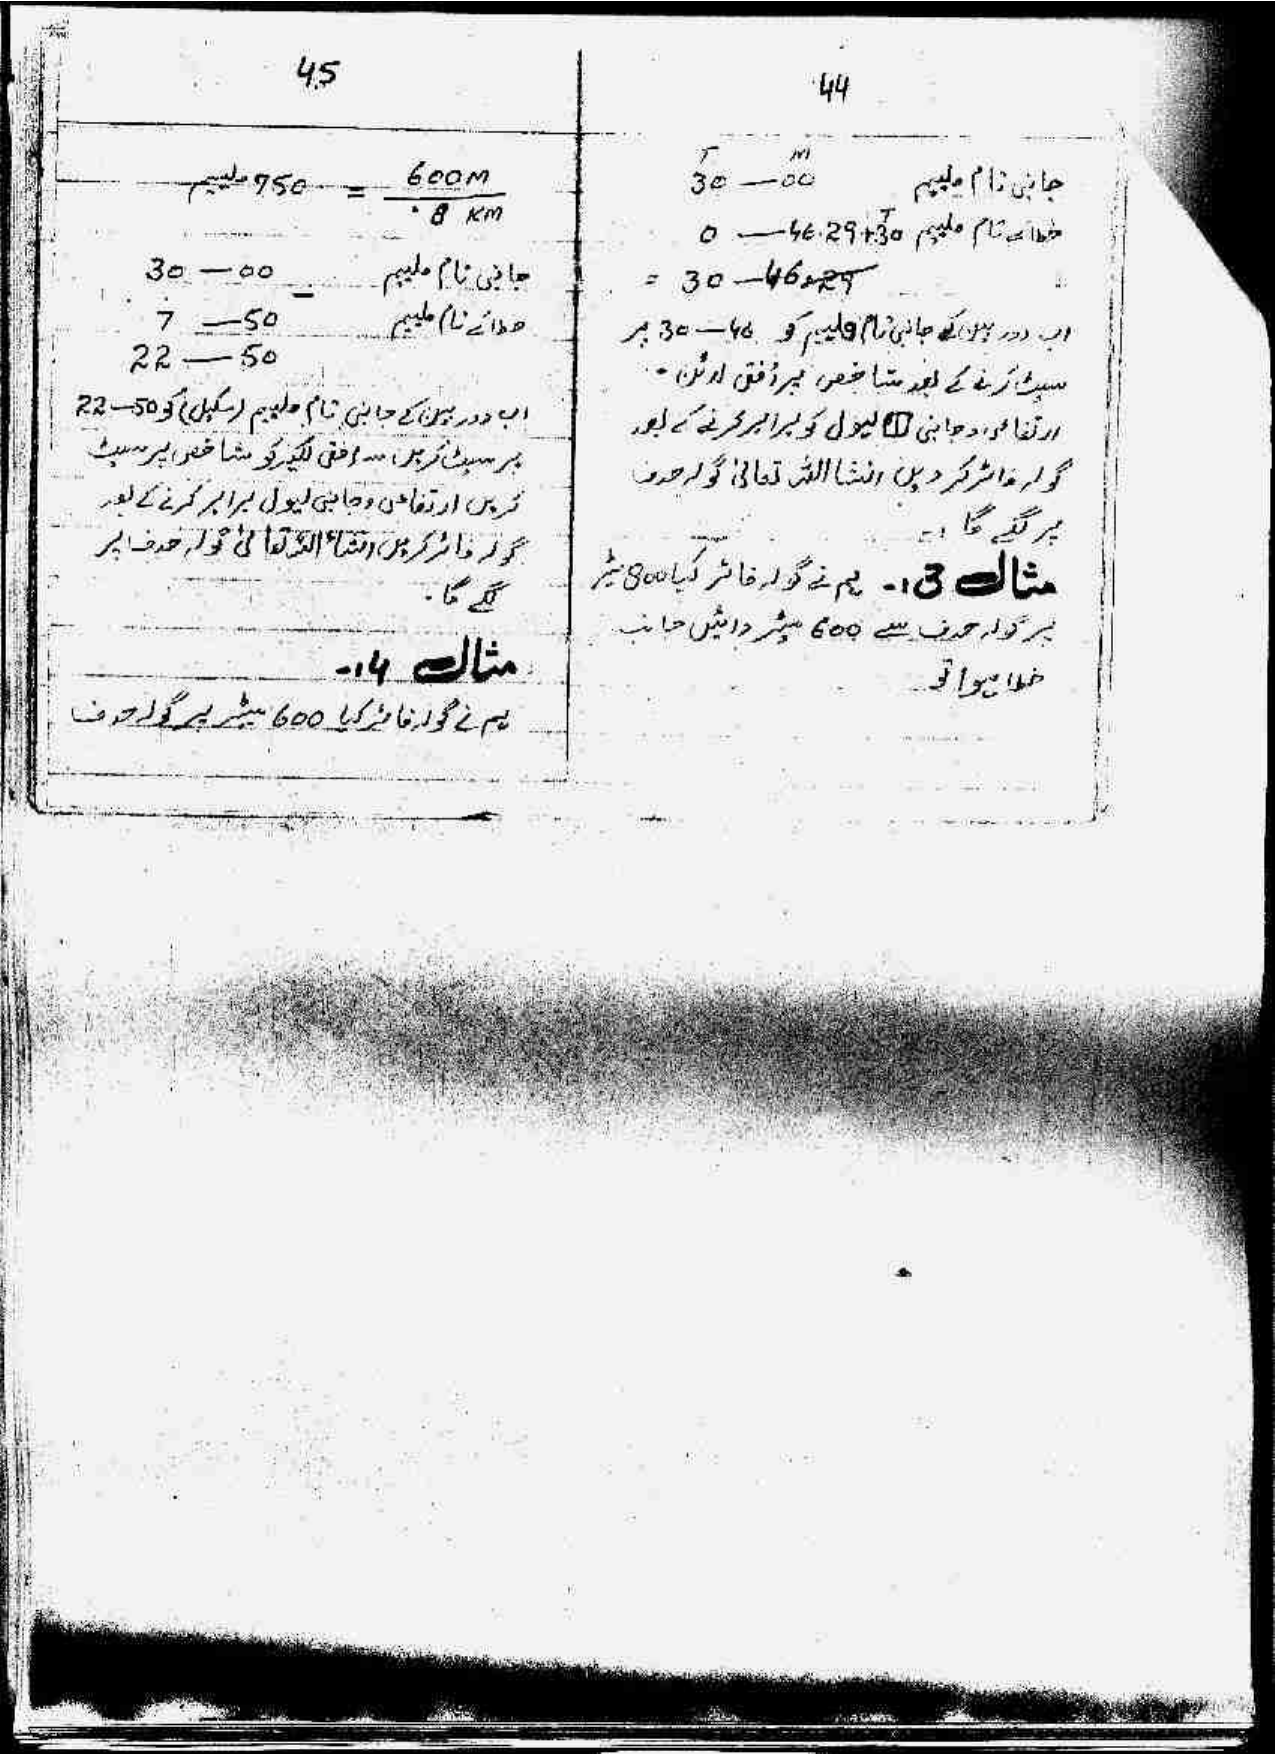 44
T M
جانبی تام ملییم 30 — 00
خطائے تام ملییم 0 — 46.29 + 30
= 30 — 46.29
اب دوربین کے جانبی تام ملییم کو 46 — 30 پر
سیٹ کرنے کے بعد شاخص پر افقی لائن۔
ارتفاعی و جانبی لیول کو برابر کرنے کے بعد
گولہ فائر کر دیں انشا اللہ تعالیٰ گولہ حدف
پر لگے گا :۔
مثال 3:۔ ہم نے گولہ فائر کیا 800 میٹر
پر گولہ حدف سے 600 میٹر دائیں جانب
خطا ہوا تو
45
600M / .8 KM = 750 ملییم
جانبی تام ملییم 30 — 00 –
خطائے تام ملییم 7 — 50
22 — 50
اب دوربین کے جانبی تام ملییم (سکیل) کو 50—22
پر سیٹ کریں افقی لکیر کو شاخص پر سیٹ
کریں ارتفاعی و جانبی لیول برابر کرنے کے بعد
گولہ فائر کریں انشاء اللہ تعالیٰ گولہ حدف پر
لگے گا۔
مثال 4:۔
ہم نے گولہ فائر کیا 600 میٹر پر گولہ حدف